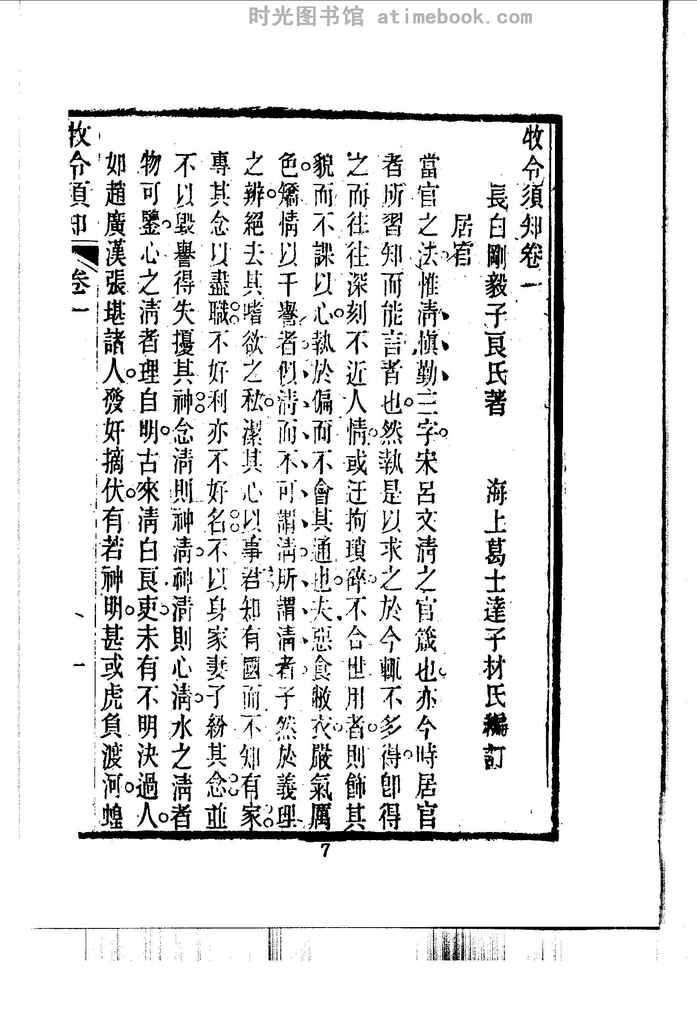 时光图书馆 atimebook.com
牧令須知卷一
長白剛毅子良氏著 海上葛士達子材氏編訂
居官
當官之法惟淸愼勤三字宋呂文淸之官箴也亦今時居官
者所習知而能言者也然執是以求之於今輒不多得卽得
之而往往深刻不近人情或迂拘瑣碎不合世用者則飾其
貌而不課以心執於偏而不會其通也夫惡食敝衣嚴氣厲
色矯情以干譽者似淸而不可謂淸所謂淸者孑然於義理
之辨絕去其嗜欲之私潔其心以事君知有國而不知有家
專其念以盡職不好利亦不好名不以身家妻子紛其念並
不以毀譽得失擾其神念淸則神淸神淸則心淸水之淸者
物可鑒心之淸者理自明古來淸白良吏未有不明決過人
如趙廣漢張堪諸人發奸摘伏有若神明甚或虎負渡河蝗
牧令須知 卷一 一
7